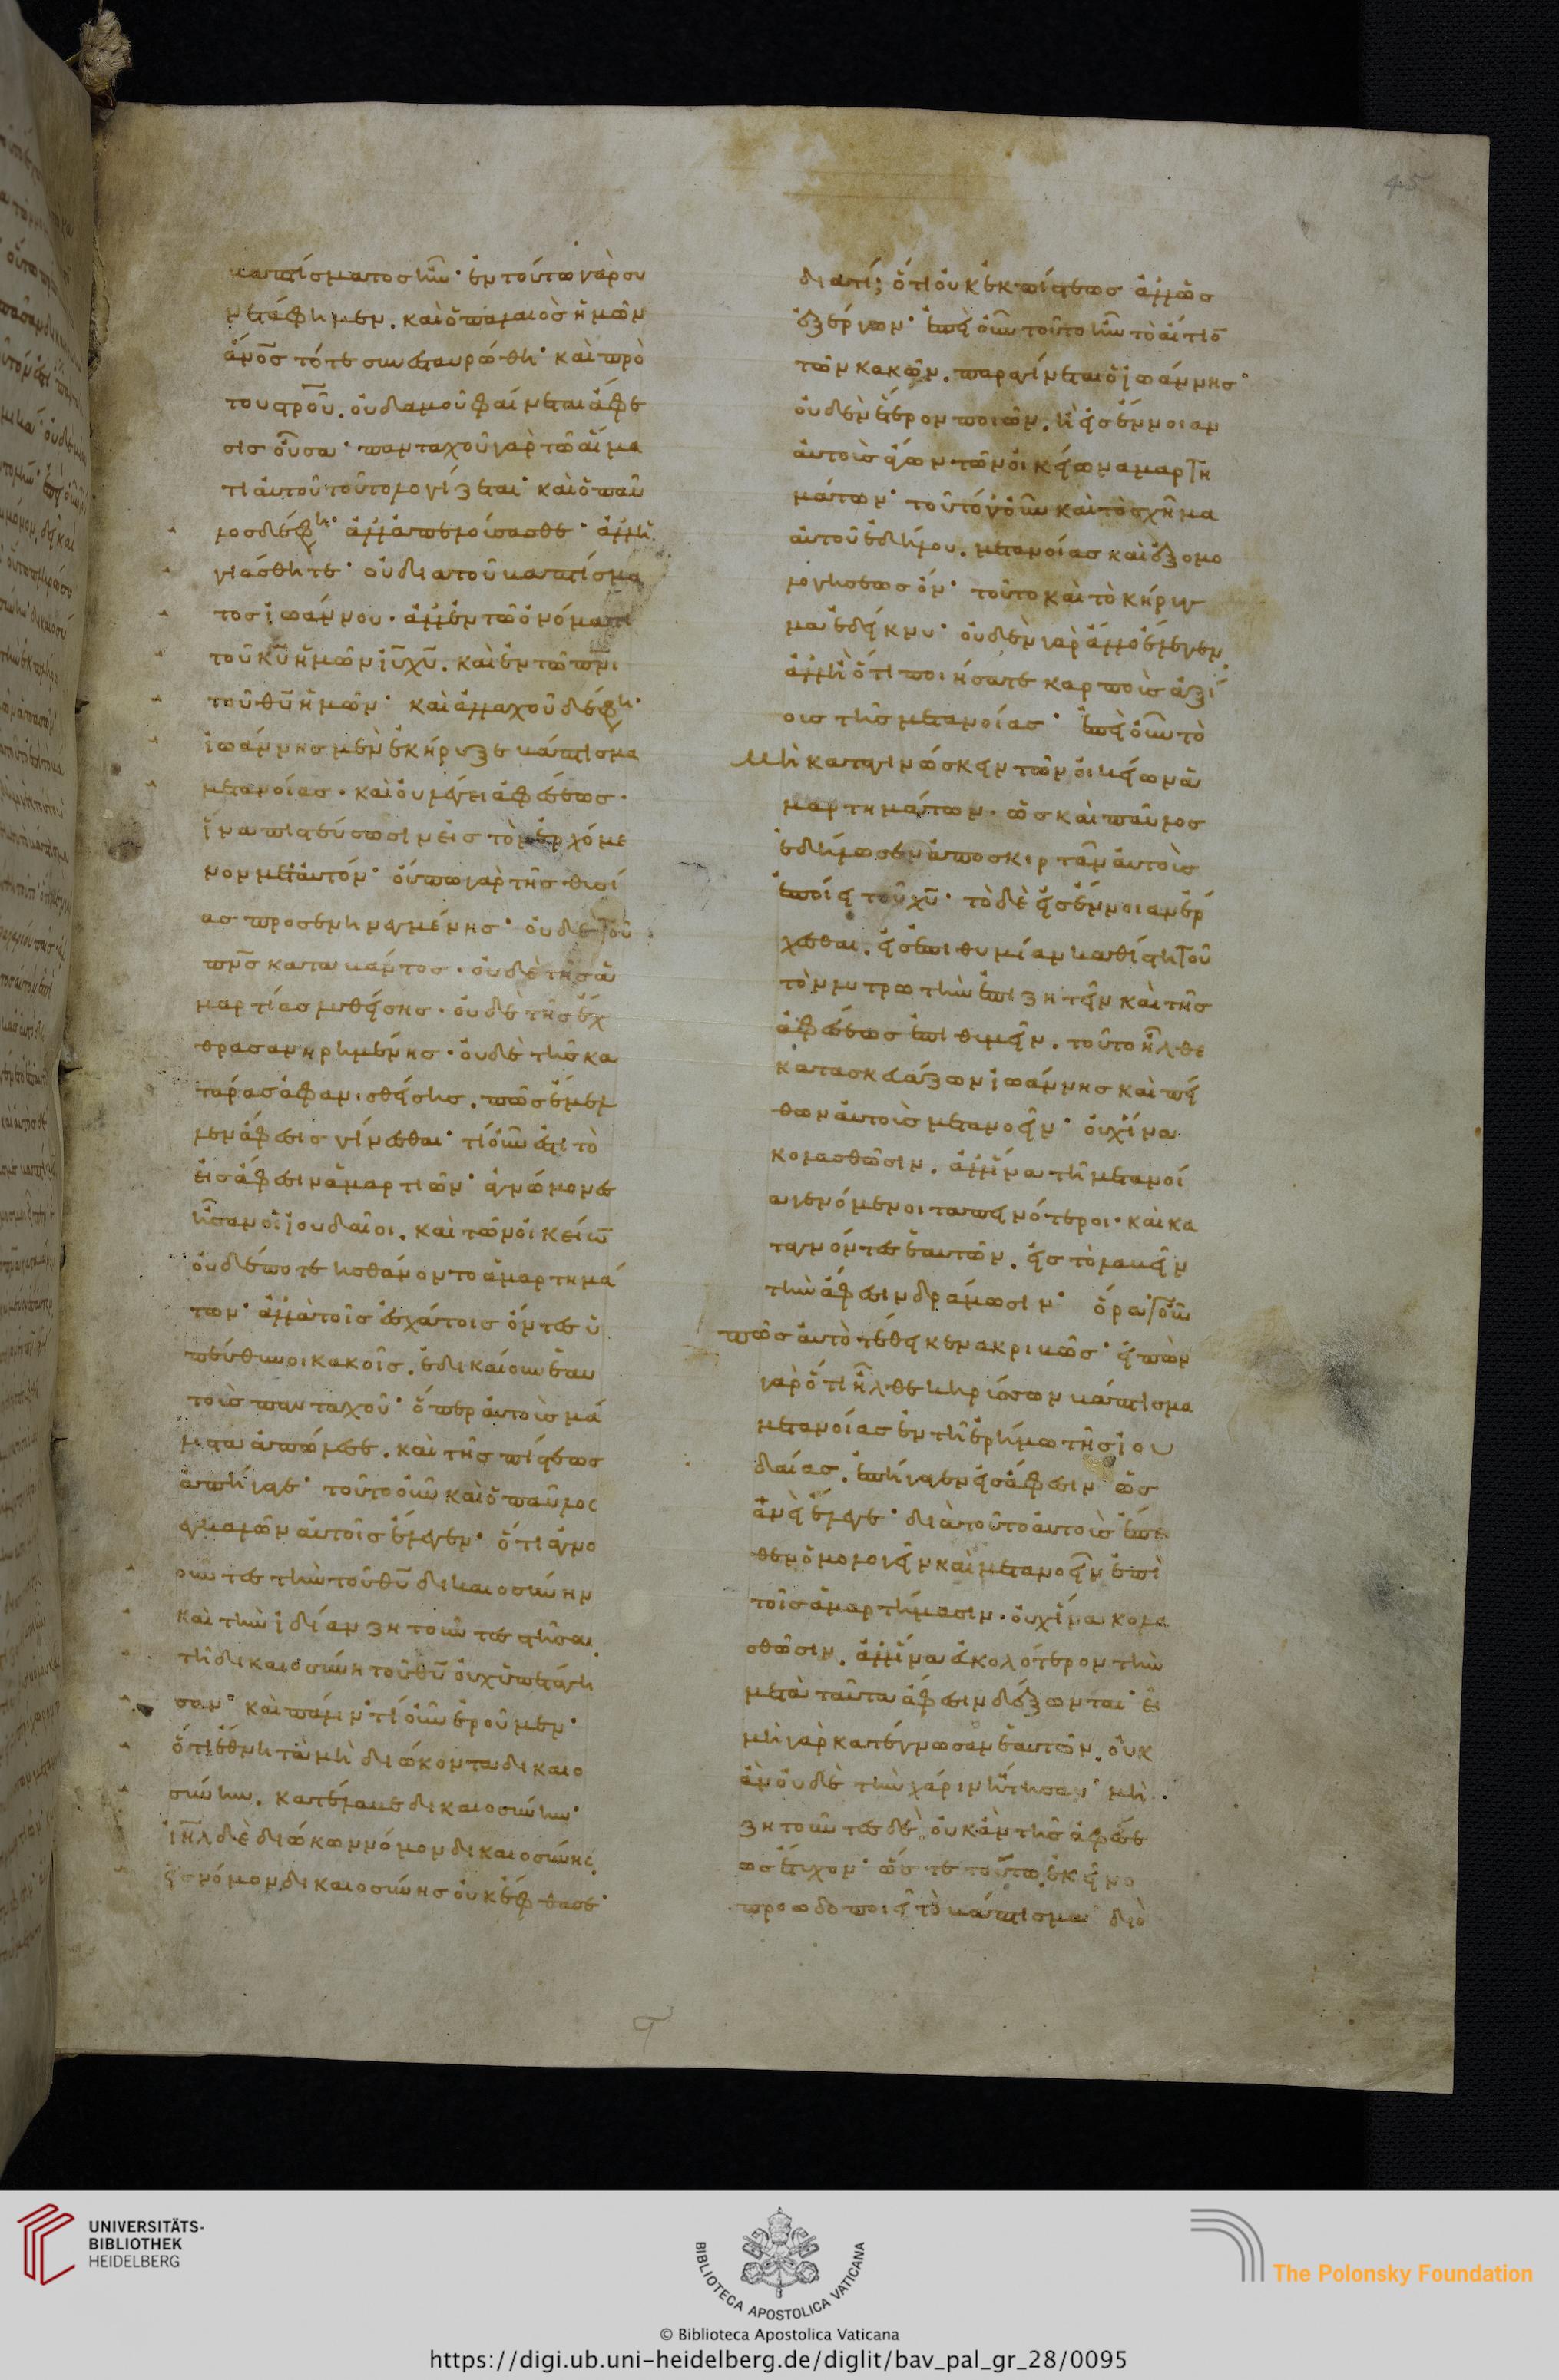 βαπτίσματος ἦν· ἐν τούτω γὰρ συ
νετάφημεν. καὶ ὁ παλαιὸς ἡμῶν
ἄνο̅ς τότε συνεσταυρώθη· καὶ πρὸ
του στρο̅υ. οὐδαμοῦ φαίνεται ἄφε
σις οὖσα· πανταχοῦ γὰρ τῶ αἵμα
τι αὐτοῦ τοῦτο λογίζεται· καὶ ὁ παῦ
λος δέ φη· ἀλλ' ἀπελούσασθε· ἀλλ' ἡ
γιάσθητε· οὐ δια τοῦ βαπτίσμα
τος ἰωάννου. ἀλλ' ἐν τῶ ὀνόματι
τοῦ κυ̅ ἡμῶν ιυ̅ χυ̅. καὶ ἐν τῶ πν̅ι
τοῦ θυ̅ ἡμῶν· καὶ ἀλλαχοῦ δέ φη·
ἰωάννης μὲν ἐκήρυξε βάπτισμα
μετανοίας. καὶ οὐ λέγει ἀφέσεως.
ἵνα πιστεύσωσιν εἰς τὸν ἐρχόμε
νον μετ' αὐτόν· οὔπω γὰρ τῆς θυσί
ας προσενηνεγμένης· οὐδὲ τοῦ
πν̅ς καταβάντος. οὐδὲ τῆς ἁ
μαρτίας λυθείσης. οὐδὲ τῆς ἔχ
θρας ανηρημένης. οὐδὲ τῆς κα
τάρας ἀφανισθείσης. πῶς ἔμελ
λεν ἄφεσις γίνεσθαι· τί οὖν ἐστι τὸ
εἰς ἄφεσιν ἁμαρτιῶν· ἀγνώμονες
ἦσαν οἱ ἰουδαῖοι. καὶ τῶν οἰκείω̅
οὐδέποτε ησθάνοντο ἁμαρτημά
των· ἀλλὰ τοῖς ἐσχάτοις ὄντες ὑ
πεύθυνοι κακοῖς. ἐδικαίουν ἑαυ
τοὺς πανταχοῦ· ὅπερ αὐτοὺς μά
λιστα ἀπώλεσε. καὶ τῆς πίστεως
ἀπήγαγε· τοῦτο οὖν καὶ ὁ παῦλος
ἐγκαλῶν αὐτοῖς ἔλεγεν· ὅτι ἀγνο
οῦντες τὴν τοῦ θυ̅ δικαιοσύνην
καὶ τὴν ἰδίαν ζητοῦντες στῆσαι.
τῆ δικαιοσύνη τοῦ θυ̅ οὐχ ὑπετάγη
σαν· καὶ πάλιν τί οὖν ἐροῦμεν·
ὅτι ἔθνη τὰ μὴ διώκοντα δικαιο
σύνην. κατέλαβε δικαιοσύνην·
ιη̅λ δὲ διώκων νόμον δικαιοσύνης.
εἰς νόμον δικαιοσύνης οὐκ ἔφθασε·
διατί; ὅτι οὐκ ἐκ πίστεως ἀλλ' ὡς
ἐξ ἔργων· ἐπεὶ οὖν τοῦτο ἦν τὸ αἴτιο̅
τῶν κακῶν. παραγίνεται ὁ ἰωάννης·
οὐδὲν ἕτερον ποιῶν. ἢ εἰς ἔννοιαν
αὐτοὺς ἄγων τῶν οἰκείων αμαρτη
μάτων· τοῦτο γοῦν καὶ τὸ σχῆμα
αὐτοῦ ἐδήλου. μετανοίας καὶ ἐξομο
λογησεως ὄν· τοῦτο καὶ τὸ κήρυγ
μα ἐδείκνυ· οὐδὲν γὰρ ἄλλο ἔλεγεν
ἀλλ' ἢ ὅτι ποιήσατε καρποὺς ἀξί
ους τῆς μετανοίας· ἐπεὶ οὖν τὸ
μὴ καταγινώσκειν τῶν οἰκείων ἁ
μαρτημάτων. ὡς καὶ παῦλος
ἐδήλωσεν ἀποσκιρτᾶν αὐτοὺς
ἐποίει τοῦ χυ̅· τὸ δὲ εἰς ἔννοιαν ἔρ
χεσθαι. εἰς ἐπιθυμίαν καθίστη τοῦ
τὸν λυτρωτὴν ἐπιζητεῖν καὶ τῆς
ἀφέσεως ἐπιθυμεῖν. τοῦτο ἦλθε
κατασκευάζων ἰωάννης καὶ πεί
θων αὐτοὺς μετανοεῖν· οὐχ ἵνα
κολασθῶσιν. ἀλλ' ἵνα τῆ μετανοί
α γενόμενοι ταπεινότεροι. καὶ κα
ταγνόντες ἑαυτῶν. εἰς τὸ λαβεῖν
τὴν ἄφεσιν δράμωσιν· ὅρα γοῦν
πῶς αὐτὸ τέθεικεν ακριβῶς· εἰπὼν
γὰρ ὅτι ἦλθε κηρύσσων βάπτισμα
μετανοίας ἐν τῆ ἐρήμω τῆς ἰου
δαίας. ἐπήγαγεν εἰς ἄφεσιν ὡς
ἂν εἰ ἔλεγε· διὰ τοῦτο αὐτοὺς ἔπει
θεν ὁμολογεῖν καὶ μετανοεῖν ἐπὶ
τοῖς ἁμαρτήμασιν. οὐχ ἵνα κολα
σθῶσιν. ἀλλ' ἵνα εὐκολότερον τὴν
μετὰ ταῦτα ἄφεσιν δέξωνται· εἰ
μὴ γὰρ κατέγνωσαν ἑαυτῶν. οὐκ
ἂν οὐδὲ τὴν χάριν ἤτησαν· μὴ
ζητοῦντες δὲ, οὐκ ἂν τῆς ἀφέσε
ως ἔτυχον· ὥστε τοῦτο ἐκείνο
προωδοποιεῖ τὸ βάπτισμα· διὸ
45
UNIVERSITÄTS-
BIBLIOTHEK
HEIDELBERG
BIBLIOTECA APOSTOLICA VATICANA
The Polonsky Foundation
© Biblioteca Apostolica Vaticana
https://digi.ub.uni-heidelberg.de/diglit/bav_pal_gr_28/0095